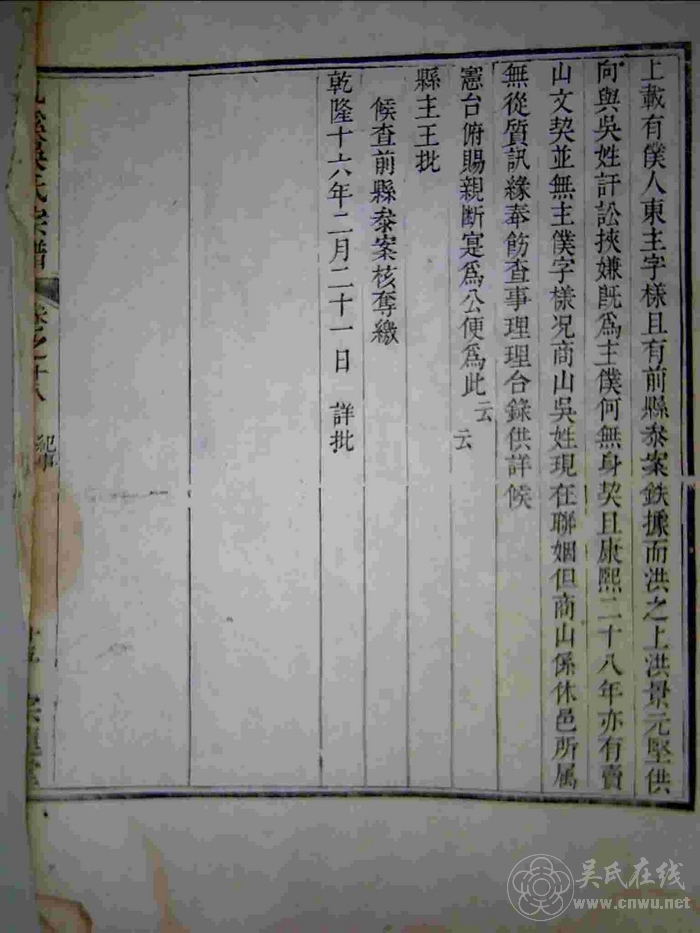 上載有僕人東主字樣且有前縣叅案鉄據而洪之上洪景元堅供
向與吳姓訐訟挾嫌旣爲主僕何無身契且康熙二十八年亦有賣
山文契並無主僕字樣况商山吳姓現在聯姻但商山係休邑所属
無從質訊緣奉飭查事理理合錄供詳候
憲台俯賜親断寔爲公便爲此云云
縣主王批
候查前縣叅案核奪繳
乾隆十六年二月二十一日 詳批
氏宗譜
卷之十八 紀事
十五
吴氏在线
www.cnwu.net